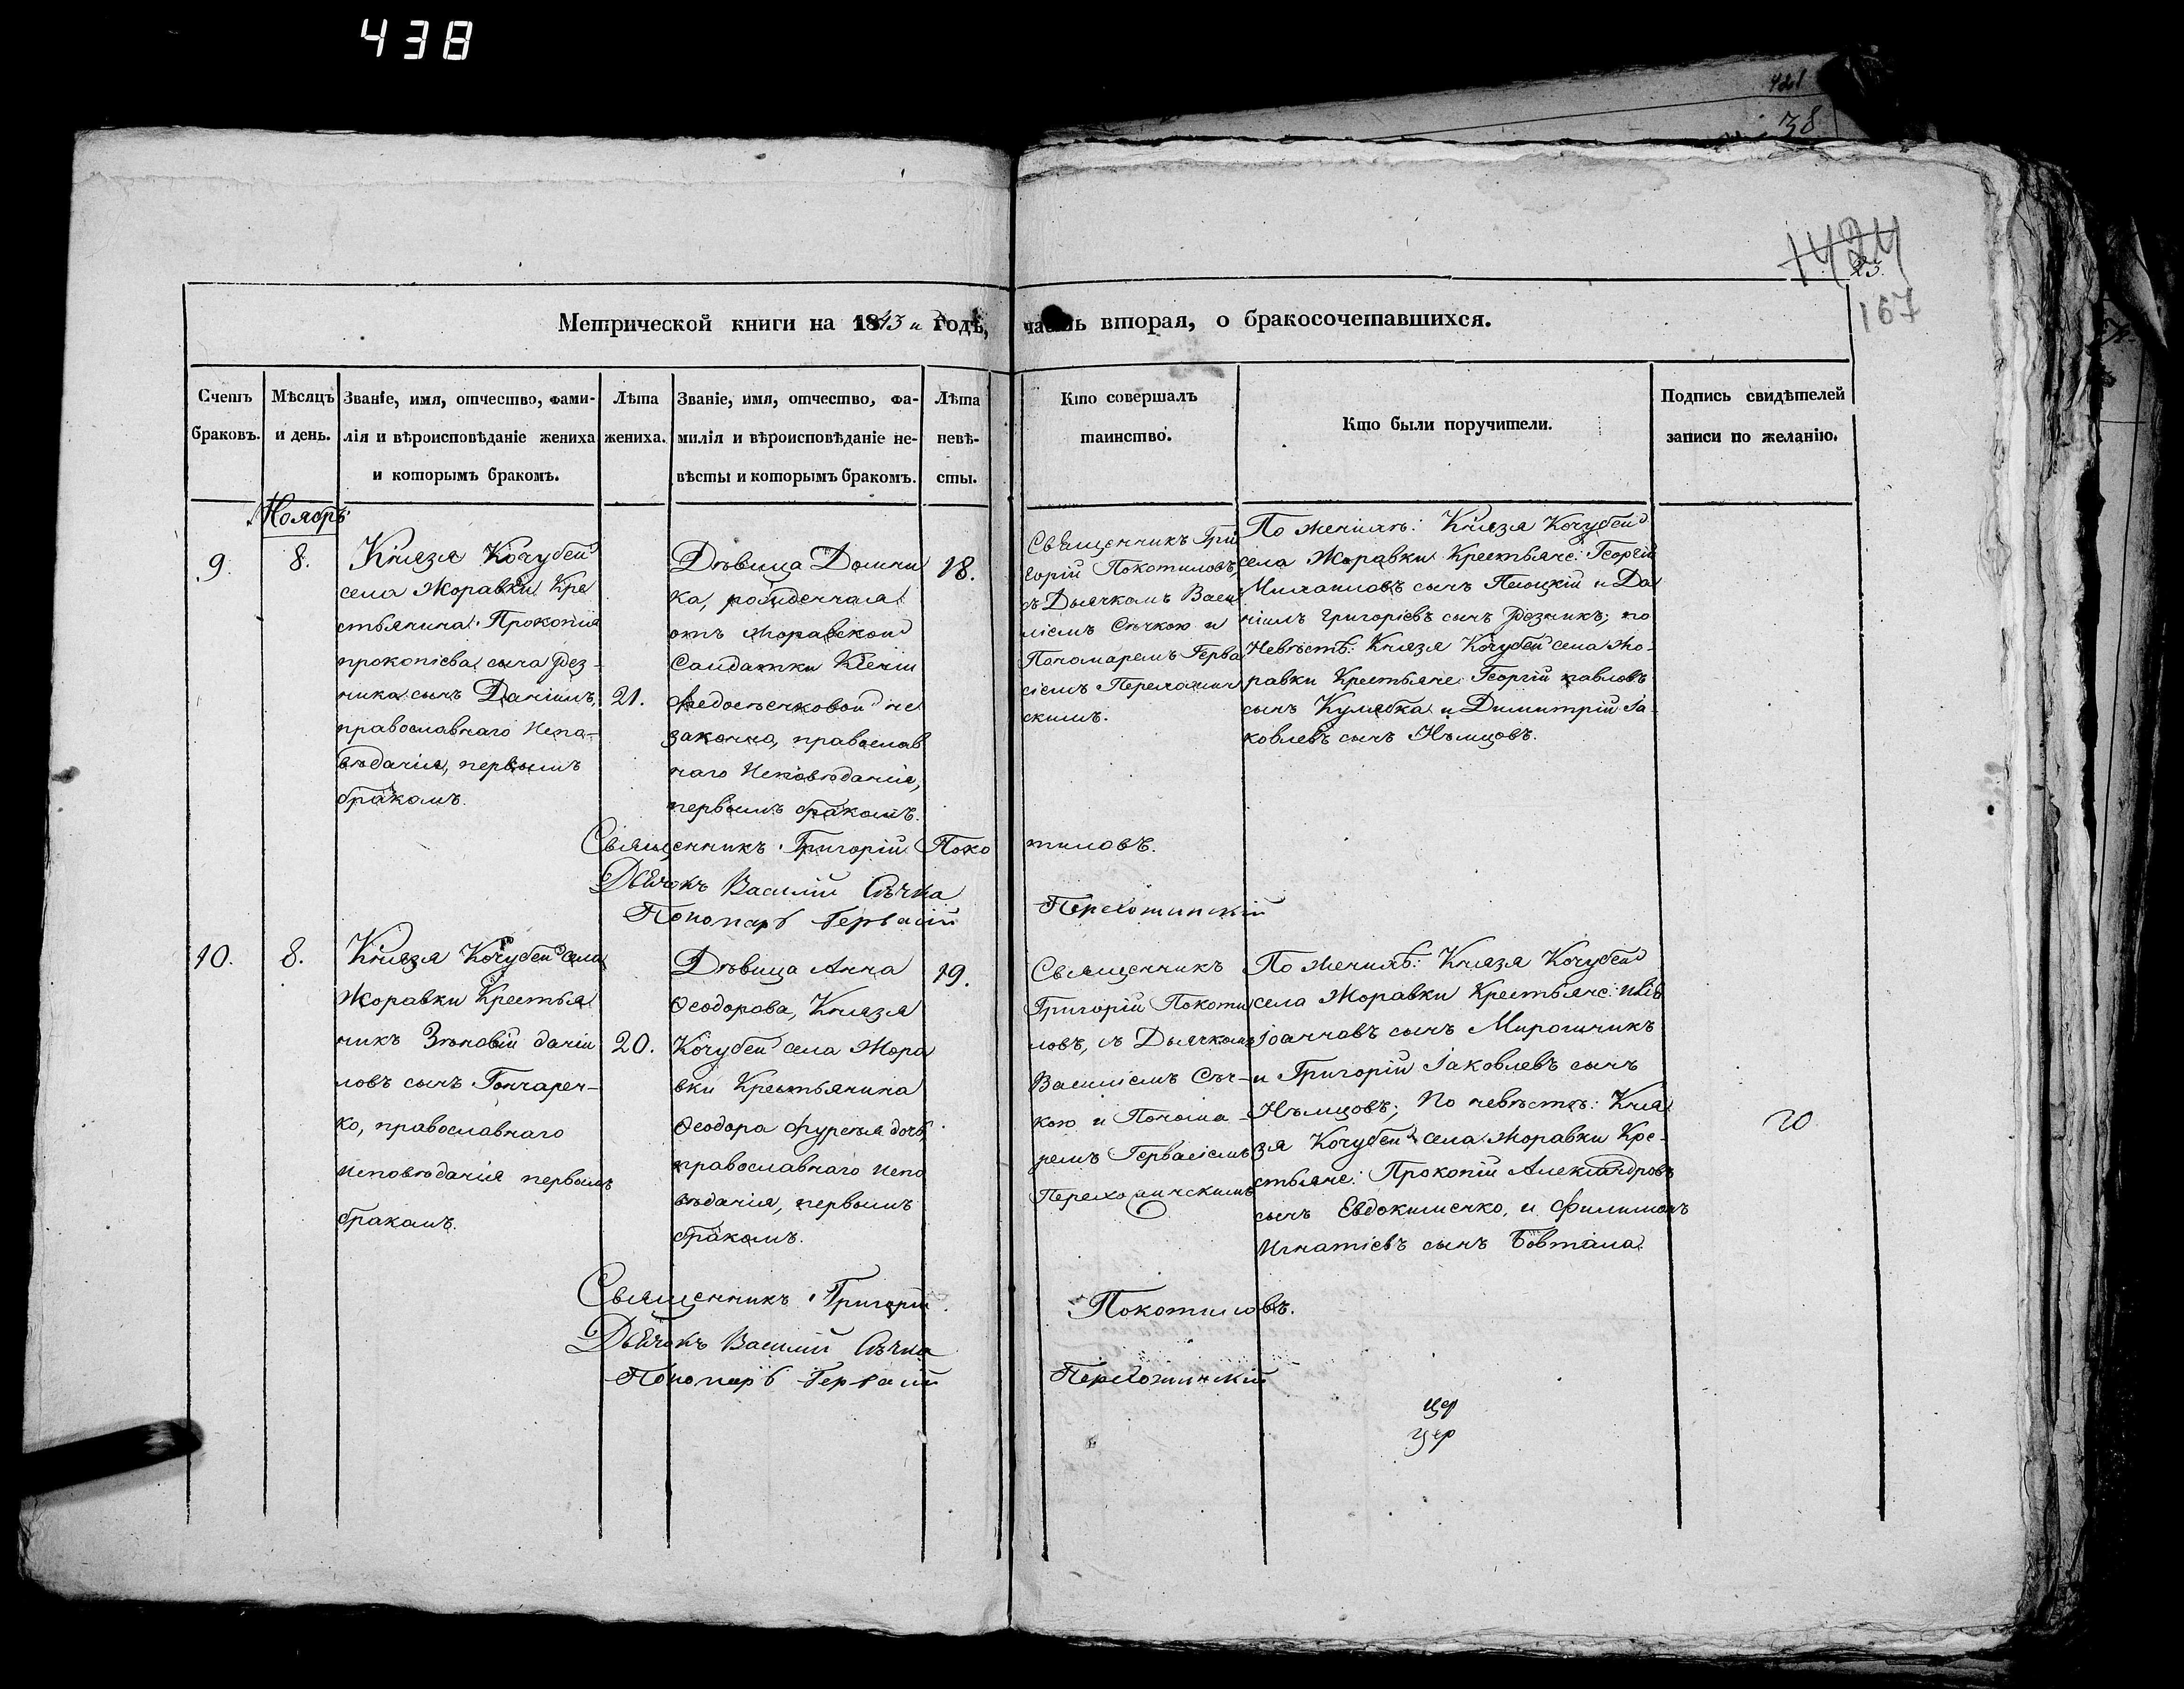 438
421
38
1424
23.
167
Метрической книги на 1843 й годъ, часть вторая, о бракосочетавшихся.
Счетъ браковъ.
Мѣсяцъ и день.
Званіе, имя, отчество, фами-
лія и вѣроисповѣданіе жениха
и которымъ бракомъ.
Лѣта
жениха.
Званіе, имя, отчество, фа-
милія и вѣроисповѣданіе не-
вѣсты и которымъ бракомъ.
Лѣта
невѣ-
сты.
Кто совершалъ
таинство.
Кто были поручители.
Подпись свидѣтелей
записи по желанію.
Ноябрь
9.
8.
Князя Кочубей
села Жоравки Кре
стьянина Прокопія
прокопіева сына Рез-
ника сынъ Даніилъ,
православнаго Испо-
вѣданія, первымъ
бракомъ.
21.
Дѣвица Домни
ка, рожденная
отъ Жоравской
Салдатки Ксеніи
Федосѣенковой не
законно, православ
наго Исповѣданія,
первымъ бракомъ.
18.
Священникъ Гри
горій Покотиловъ,
съ Дьячкомъ Васи
ліемъ Сѣчкою и
Пономаремъ Герва
сіемъ Перехожин
скимъ.
По женихѣ: Князя Кочубей
села Жоравки Крестьяне: Георгій
Михаиловъ сынъ Плоцкій и Да
ніилъ Григоріевъ сынъ Резникъ; по
Невѣстѣ: Князя Кочубей села Жо-
равки Крестьяне Георгій павловъ
сынъ Кулябка и Димитрій Іа-
ковлевъ сынъ Нѣмцовъ.
Священникъ Григорій Поко тиловъ.
Дьячокъ Василій Сѣчка
Пономарь Гервасій Перехожинскій
10.
8.
Князя Кочубей села
Жоравки Крестья
никъ Зѣновій даніи
ловъ сынъ Гончарен-
ко, православнаго
исповѣданія первымъ
бракомъ.
20.
Дѣвица Анна
Ѳеодорова, Князя
Кочубей села Жора
вки Крестьянина
Ѳеодора Фурсы дочь
православнаго испо
вѣданія, первымъ
бракомъ.
19.
Священникъ
Григорій Покоти
ловъ, съ Дьячкомъ
Василіемъ Сѣч-
кою и Понома-
ремъ Гервасіемъ
Перехожинскимъ
По женихѣ: Князя Кочубей
села Жоравки Крестьяне:
Іоанновъ сынъ Мирошникъ
и Григорій Іаковлевъ сынъ
Нѣмцовъ; По невѣстѣ: Кня
зя Кочубей села Жоравки Кре-
стьяне: Прокопій Александровъ
сынъ Евдокименко, и Филимонъ
Игнатіевъ сынъ Бовтала.
20
Священникъ Григорій Покотиловъ.
Дьячокъ Василій Сѣчка
Пономарь Гервасій Перехожинскій